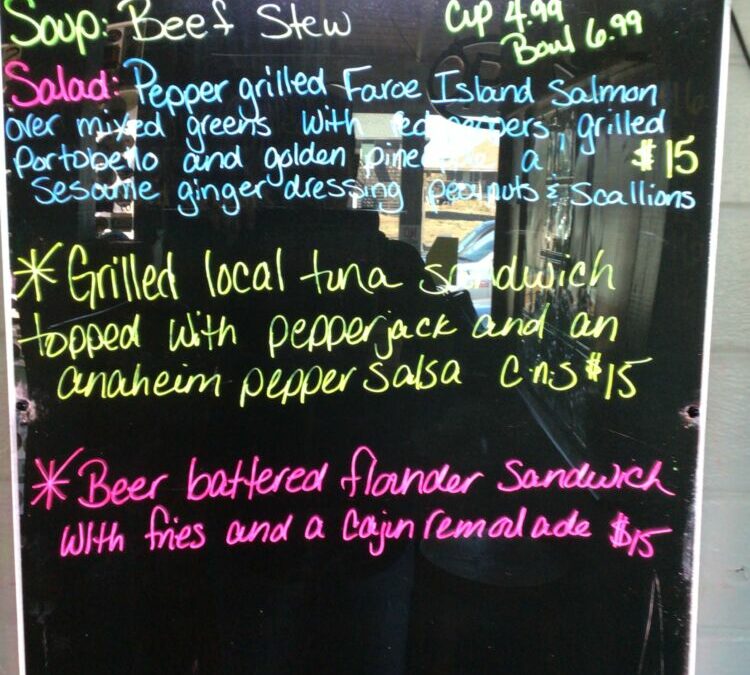 Soup: Beef Stew Cup 4.99
Bowl 6.99
Salad: Pepper grilled Faroe Island Salmon
over mixed greens with red peppers, grilled
Portobello and golden pineapple a $15
Sesame ginger dressing peanuts & Scallions
*Grilled local tuna sandwich
topped with pepperjack and an
anaheim pepper salsa c.n.s $15
*Beer battered flounder Sandwich
with fries and a Cajun remoulade $15